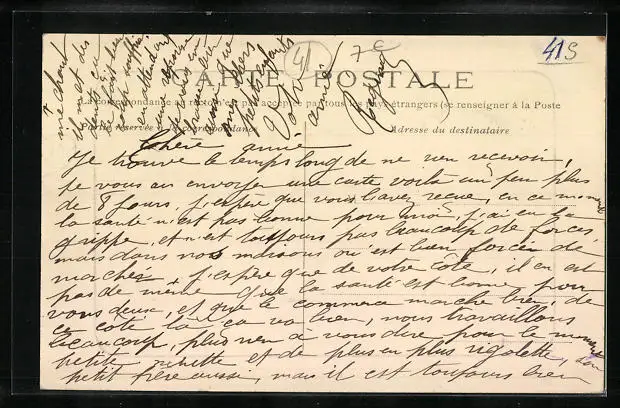 41S
41
7c
CARTE POSTALE
La correspondance au recto n'est pas acceptée par tous les pays étrangers (se renseigner à la Poste
Partie réservée à la correspondance
Adresse du destinataire
Chère amie
Je trouve le temps long de ne rien recevoir,
je vous ai envoyer une carte voilà un peu plus
de 8 jours, j'espère que vous l'avez reçue, en ce moment
la santé n'est pas bonne pour moi, j'ai eu la
grippe, et n'est toujours pas beaucoup de forces,
mais dans nos maisons on est bien forcée de
marcher, j'espère que de votre côté, il en est
pas de même que la santé est bonne pour
vous deux, et que le commerce marche bien, de
ce côté là ça va bien, nous travaillons
beaucoup, plus rien à vous dire pour le moment
petite et de plus en plus rigolette, son
petit frère aussi, mais il est toujours bien
méchant
et des
dents
en attendant
que
vous chers
petits enfants
Votre
amie